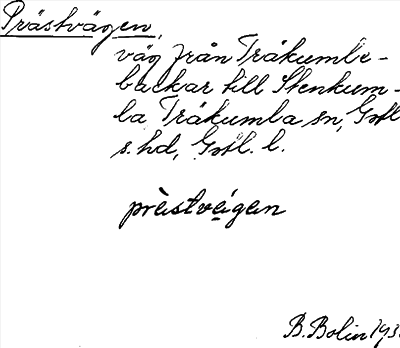 Prästvägen,
väg från Träkumbe-
backar till Stenkum-
la Träkumla sn, Gotl.
s. hd, Gotl. l.
prèstvęigen
B. Bolin 193